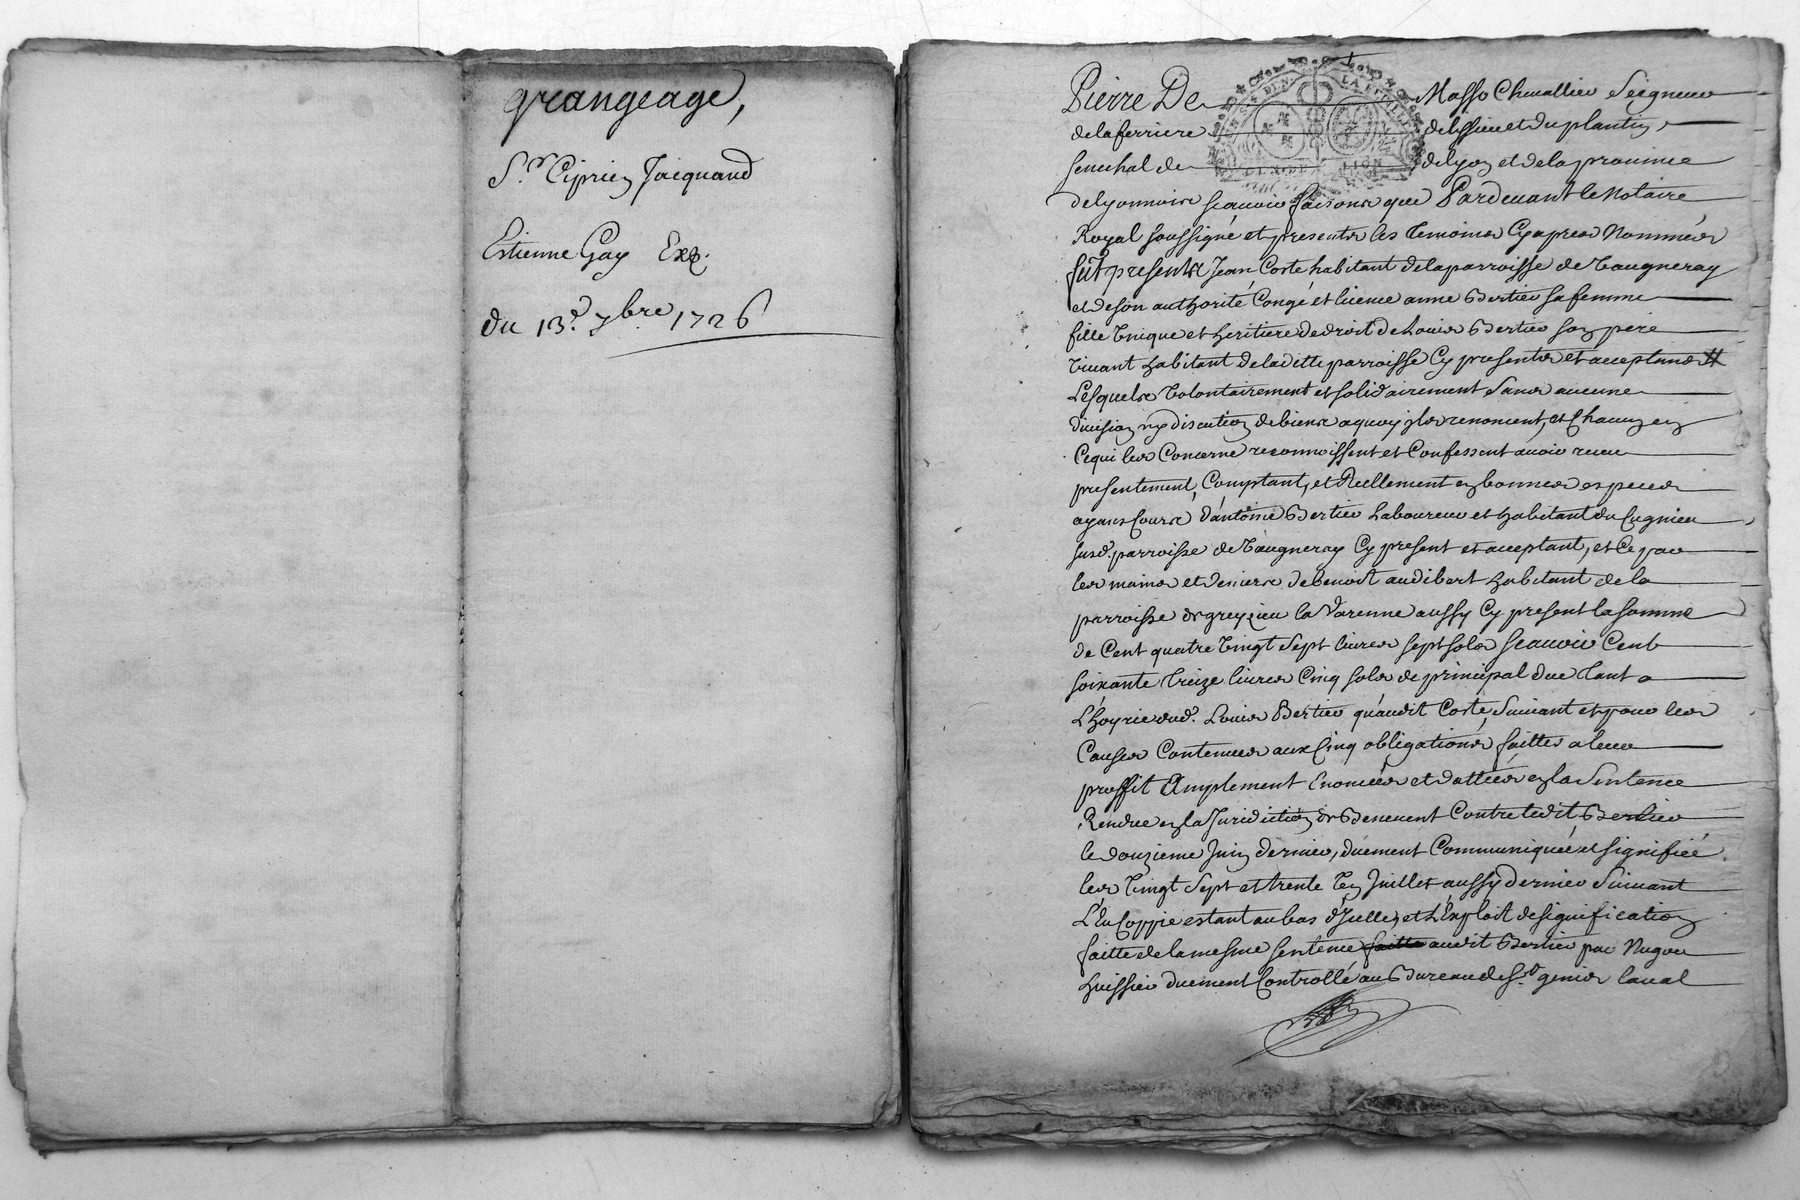 grangeage,
Sr. Ciprien Jacquand
Estienne Gay Exp.
du 13e. 7bre 1726
Pierre De Masso Chevallier Seigneur
de la ferriere de lissieu et du plantin
senechal de de lyon et de la province
de lyonnois scavoir faisons que Pardevant le Notaire
Royal soussigné et presents les temoins Cy apres Nommés
fut presents Jean Coste habitant de la parroisse de Vaugneray
et de son authorité Congé et licence anne Bertier sa femme
fille Unique et heritiere de droit de Louis Bertier son pere
vivant habitant de laditte parroisse Cy presents et acceptans #
Lesquels Volontairement et solidairement Sans aucune
division ny discution de biens a quoy ils renoncent, et Chacun en
Ce qui les Concerne reconnoissent et Confessent avoir receu
presentement, Comptant, et Reellement en bonnes especes
ayans Cours d'antoine Bertier Laboureur et habitant du Cugnieu
susd. parroisse de Vaugneray Cy present et acceptant, et Ce par
les mains et deniers de benoist audibert habitant de la
parroisse de greyzieu la Varenne aussy Cy present la somme
de Cent quatre Vingt Sept livres sept sols scavoir Cent
soixante treize livres Cinq sols de principal due tant a
L'hoyrie dud. Louis Bertier qu'audit Coste, suivant et pour les
Causes Contenues aux Cinq obligations faittes a leur
proffit Amplement Enoncées et dattées en la Sentence
Rendue en la Juridiction de Benevent Contre ledit Bertier
le douzieme Juin dernier, duement Communiquée et signifiée
les Vingt Sept et trente Un Juillet aussy dernier Suivant
L'Eu Coppie estant au bas d'Icelle, et L'Exploit de signification
faitte de la mesme sentence faitte audit Bertier par Nugue
huissier duement Controllé au Bureau de St. genis laval